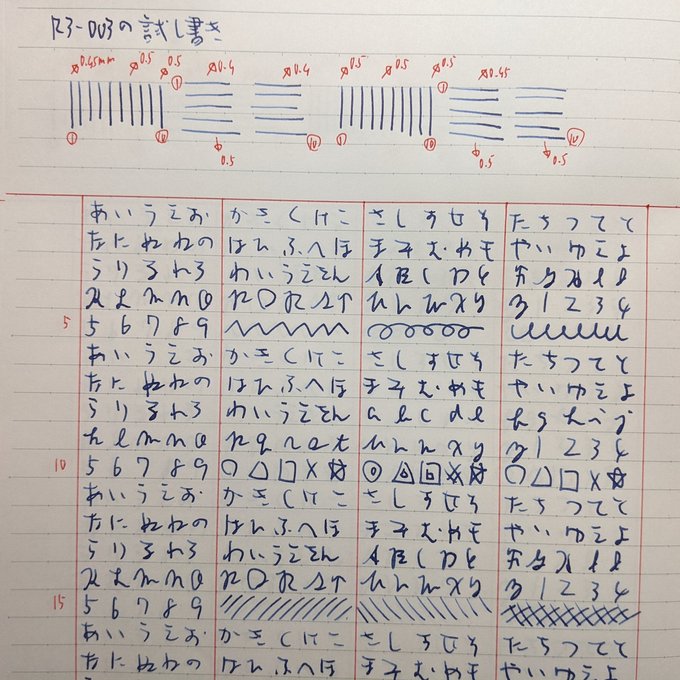 R3-003の試し書き
ø0.45mm ø0.5 ø0.5 ø0.4 ø0.4 ø0.5 ø0.5 ø0.5 ø0.45
① ①
① ⑩ ⑩ ① ⑩ ⑩
0.5 0.5 0.5
あいうえお かきくけこ さしすせそ たちつてと
なにぬねの はひふへほ まみむめも やいゆえよ
らりるれろ わいうえをん A B C D E F G H I J
K L M N O P Q R S T U V W X Y Z 1 2 3 4
5 5 6 7 8 9
あいうえお かきくけこ さしすせそ たちつてと
なにぬねの はひふへほ まみむめも やいゆえよ
らりるれろ わいうえをん a b c d e f g h i j
k l m n o p q r s t u v w x y z 1 2 3 4
10 5 6 7 8 9
あいうえお かきくけこ さしすせそ たちつてと
なにぬねの はひふへほ まみむめも やいゆえよ
らりるれろ わいうえをん A B C D E F G H I J
K L M N O P Q R S T U V W X Y Z 1 2 3 4
15 5 6 7 8 9
あいうえお かきくけこ さしすせそ たちつてと
なにぬねの はひふへほ まみむめも やいゆえよ